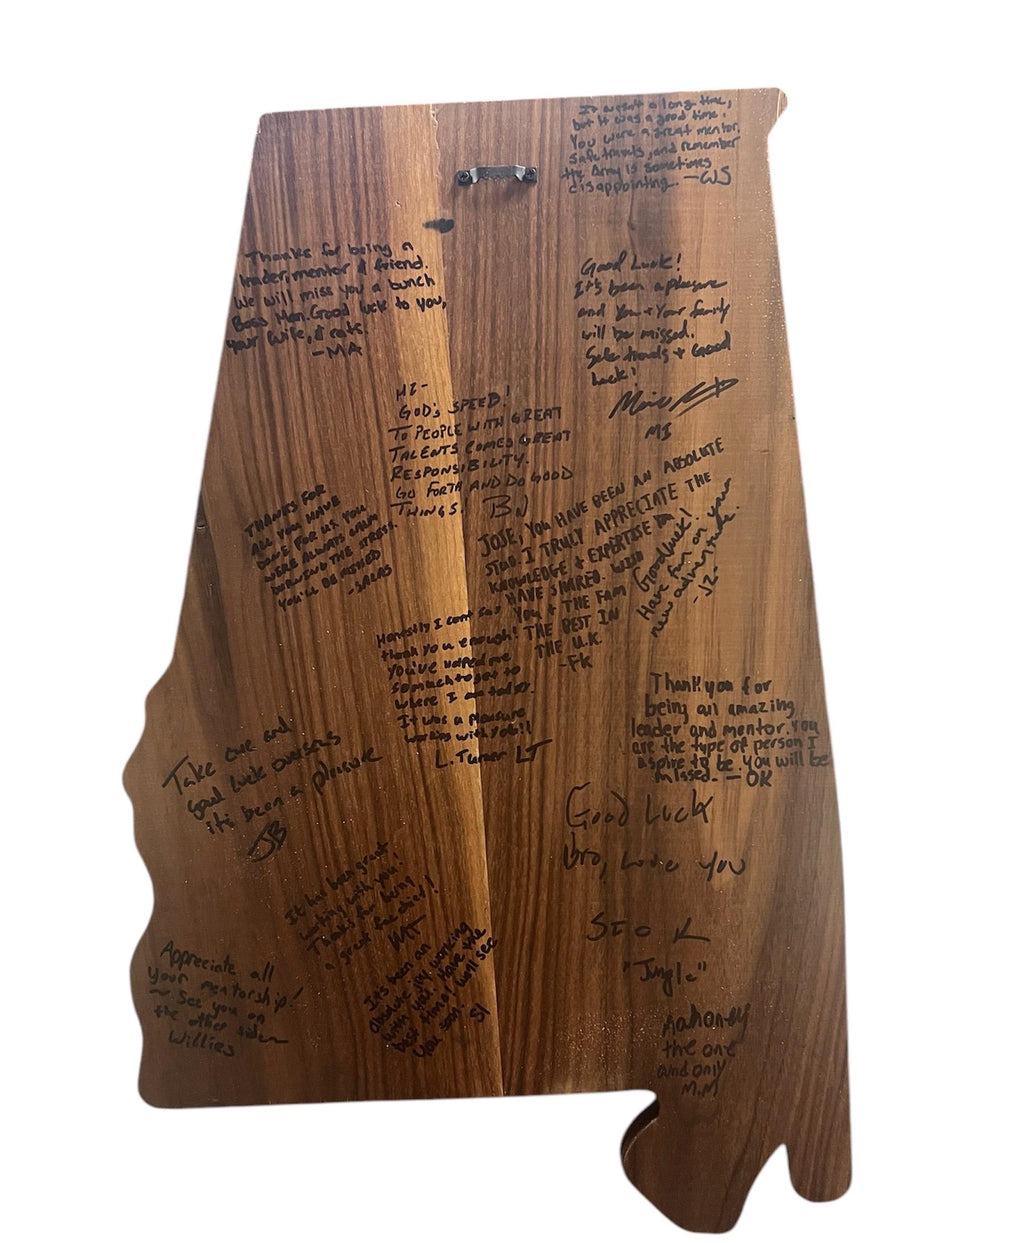 It wasn't a long time,
but it was a good time.
You were a great mentor.
Safe travels, and remember
the Army is sometimes
disappointing. -WS
Thanks for being a
leader, mentor & friend.
We will miss you a bunch
Boss Man. Good luck to you,
your wife, & cats.
-MA
Good Luck!
It's been a pleasure
and You + Your family
will be missed.
Safe travels + Good
luck!
MI
HI-
GOD'S SPEED!
TO PEOPLE WITH GREAT
TALENTS COMES GREAT
RESPONSIBILITY.
GO FORTH AND DO GOOD
THINGS. BN
THANKS FOR
ALL YOU HAVE
DONE FOR US. YOU
WERE ALWAYS CALM
DURING THE STRESS.
YOU'LL BE MISSED
-SALAS
JOSE, YOU HAVE BEEN AN ABSOLUTE
STUD. I TRULY APPRECIATE THE
KNOWLEDGE & EXPERTISE
HAVE SHARED. WISH
YOU & THE FAM
THE BEST IN
THE U.K.
-FK
Good luck!
Have fun on your
new adventure.
-JZ-
Honestly I cant say
thank you enough!
You've helped me
so much to get to
where I am today.
It was a pleasure
working with you!!
L. Turner LT
Thank you for
being an amazing
leader and mentor. You
are the type of person I
aspire to be. You will be
missed. - OK
Take care and
Good luck overseas
it's been a pleasure
JB
Good Luck
bro, Love you
"Jungle"
It has been great
working with you!
Thanks for being
a great chief!
It's been an
absolute joy working
with you! Have the
best time! We'll see
you soon! SI
Appreciate all
your mentorship!
~ See you on
the other side~
Willies
the one
and only
M.M